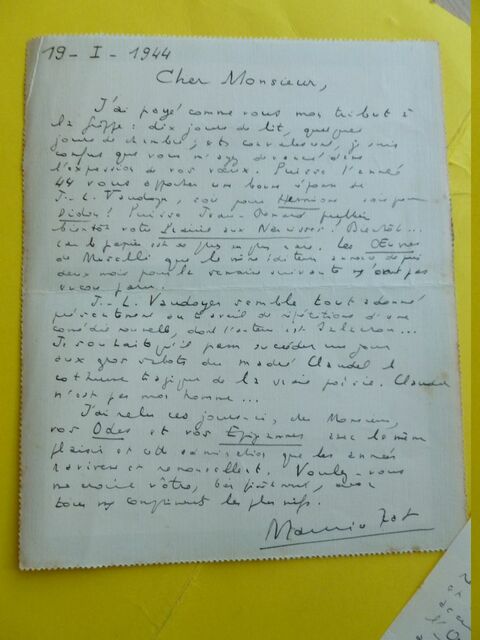 19 - I - 1944
Cher Monsieur,
J'ai payé comme vous mon tribut à
la grippe : dix jours de lit, quelques
jours de chambre, et convalescent, je suis
confus que vous m'ayez devancé dans
l'expression de vos vœux. Puisse l'année
44 vous apporter une bonne réponse de
J.-L. Vaudoyer, soit pour Hermione soit pour
Didon ! Puisse
bientôt votre Plainte aux ! Bientôt...
car le papier est de plus en plus rare. Les Œuvres
de Muselli que le même éditeur annonce depuis
deux mois pour la semaine suivante n'ont pas
encore paru.
J.-L. Vaudoyer semble tout adonné
présentement au travail de répétitions d'une
comédie nouvelle, dont l'auteur est
Je souhaite qu'il fasse succéder un jour
aux gros sabots du madré Claudel le
cothurne tragique de la vraie poésie. Claudel
n'est pas mon homme...
J'ai relu ces jours-ci, cher Monsieur,
vos Odes et vos Epigrammes avec le même
plaisir et cette admiration que les années
ravivent et renouvellent. Voulez-vous
me croire vôtre, bien fidèlement, avec
tous mes compliments les plus vifs.
Maurice